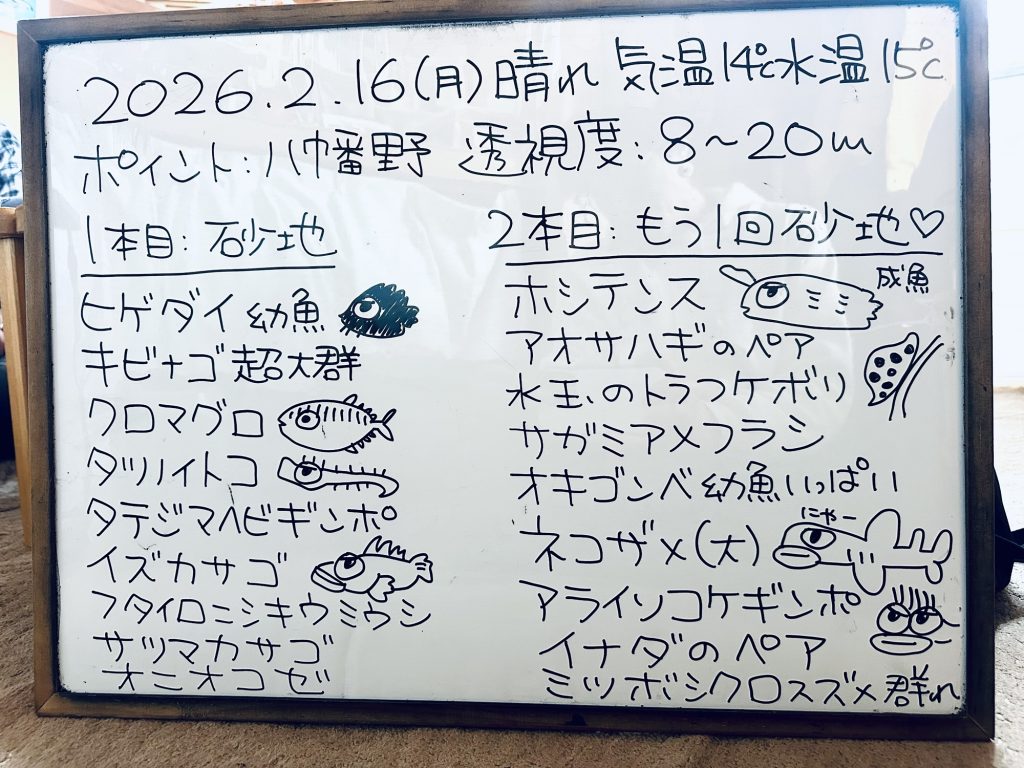 2026.2.16(月)晴れ 気温14℃水温15℃
ポイント:八幡野 透視度:8~20m
1本目:砂地
ヒゲダイ幼魚
キビナゴ超大群
クロマグロ
タツノイトコ
タテジマヘビギンポ
イズカサゴ
フタイロニシキウミウシ
サツマカサゴ
オニオコゼ
2本目:もう1回砂地♡
ホシテンス 成魚
アオサハギのペア
水玉のトラフケボリ
サガミアメフラシ
オキゴンベ幼魚いっぱい
ネコザメ(大) にゃー
アライソコケギンポ
イナダのペア
ミツボシクロスズメ群れ